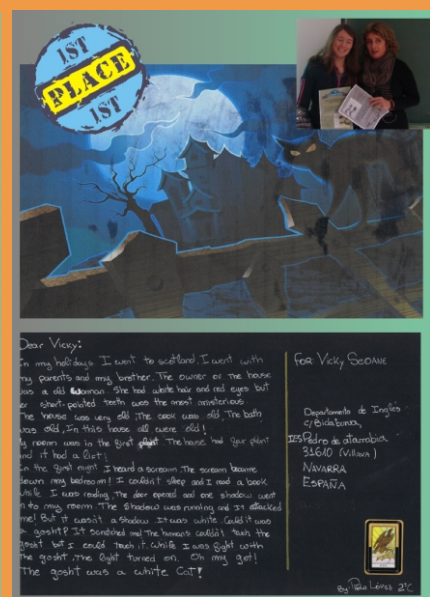 1ST
PLACE
1ST
Dear Vicky:
In my holidays I went to scotland. I went with
my parents and my brother. The owner or the house
was a old woman. She had white hair and red eyes but
her short-pointed teeth was the most misterious.
The house was very old. The cook was old. The bath
was old. In this house all were old!
My room was in the first The house had four
and it had a lift!
In the first night I heard a scream. The scream became
down my bedroom! I couldn't sleep and I read a book
while I was reading, The door opened and one shadow went
in to my room. The shadow was running and it attacked
me! But it wasn't a shadow. It was white. Could it was
a gosht? It scratched me! The humans couldn't touch the
gosht but I could touch it. While I was fight with
the gosht, the light turned on. Oh my got!
The gosht was a white Cat!
FOR: VICKY SEOANE
Departamento de Inglés
c/Bidaburua,
IES Pedro de atarrabia
31610 (Villava)
NAVARRA
ESPAÑA
By: López 2ºC